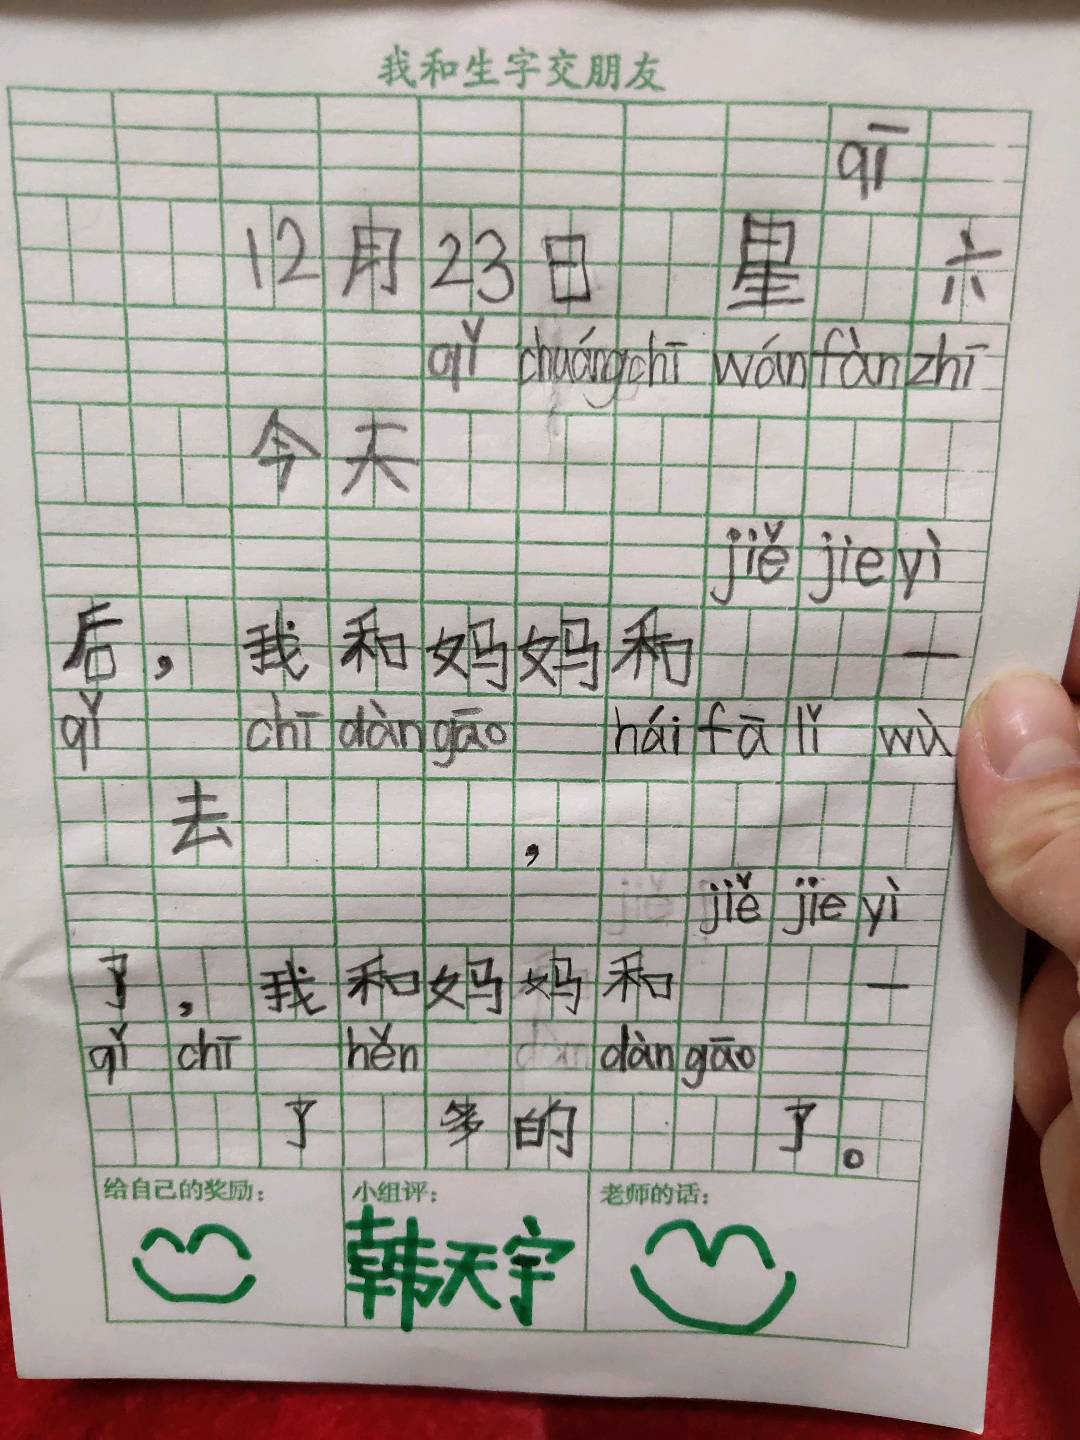 我和生字交朋友
qī
12月23日 星 六
qǐ chuáng chī wán fàn zhī
今天
jiě jie yì
后，我和妈妈和 一
qǐ chī dàn gāo hái fā lǐ wù
去 ，
jiě jie yì
了，我和妈妈和 一
qǐ chī hěn dàn gāo
了 多的 了。
给自己的奖励： 小组评： 老师的话：
韩天宇